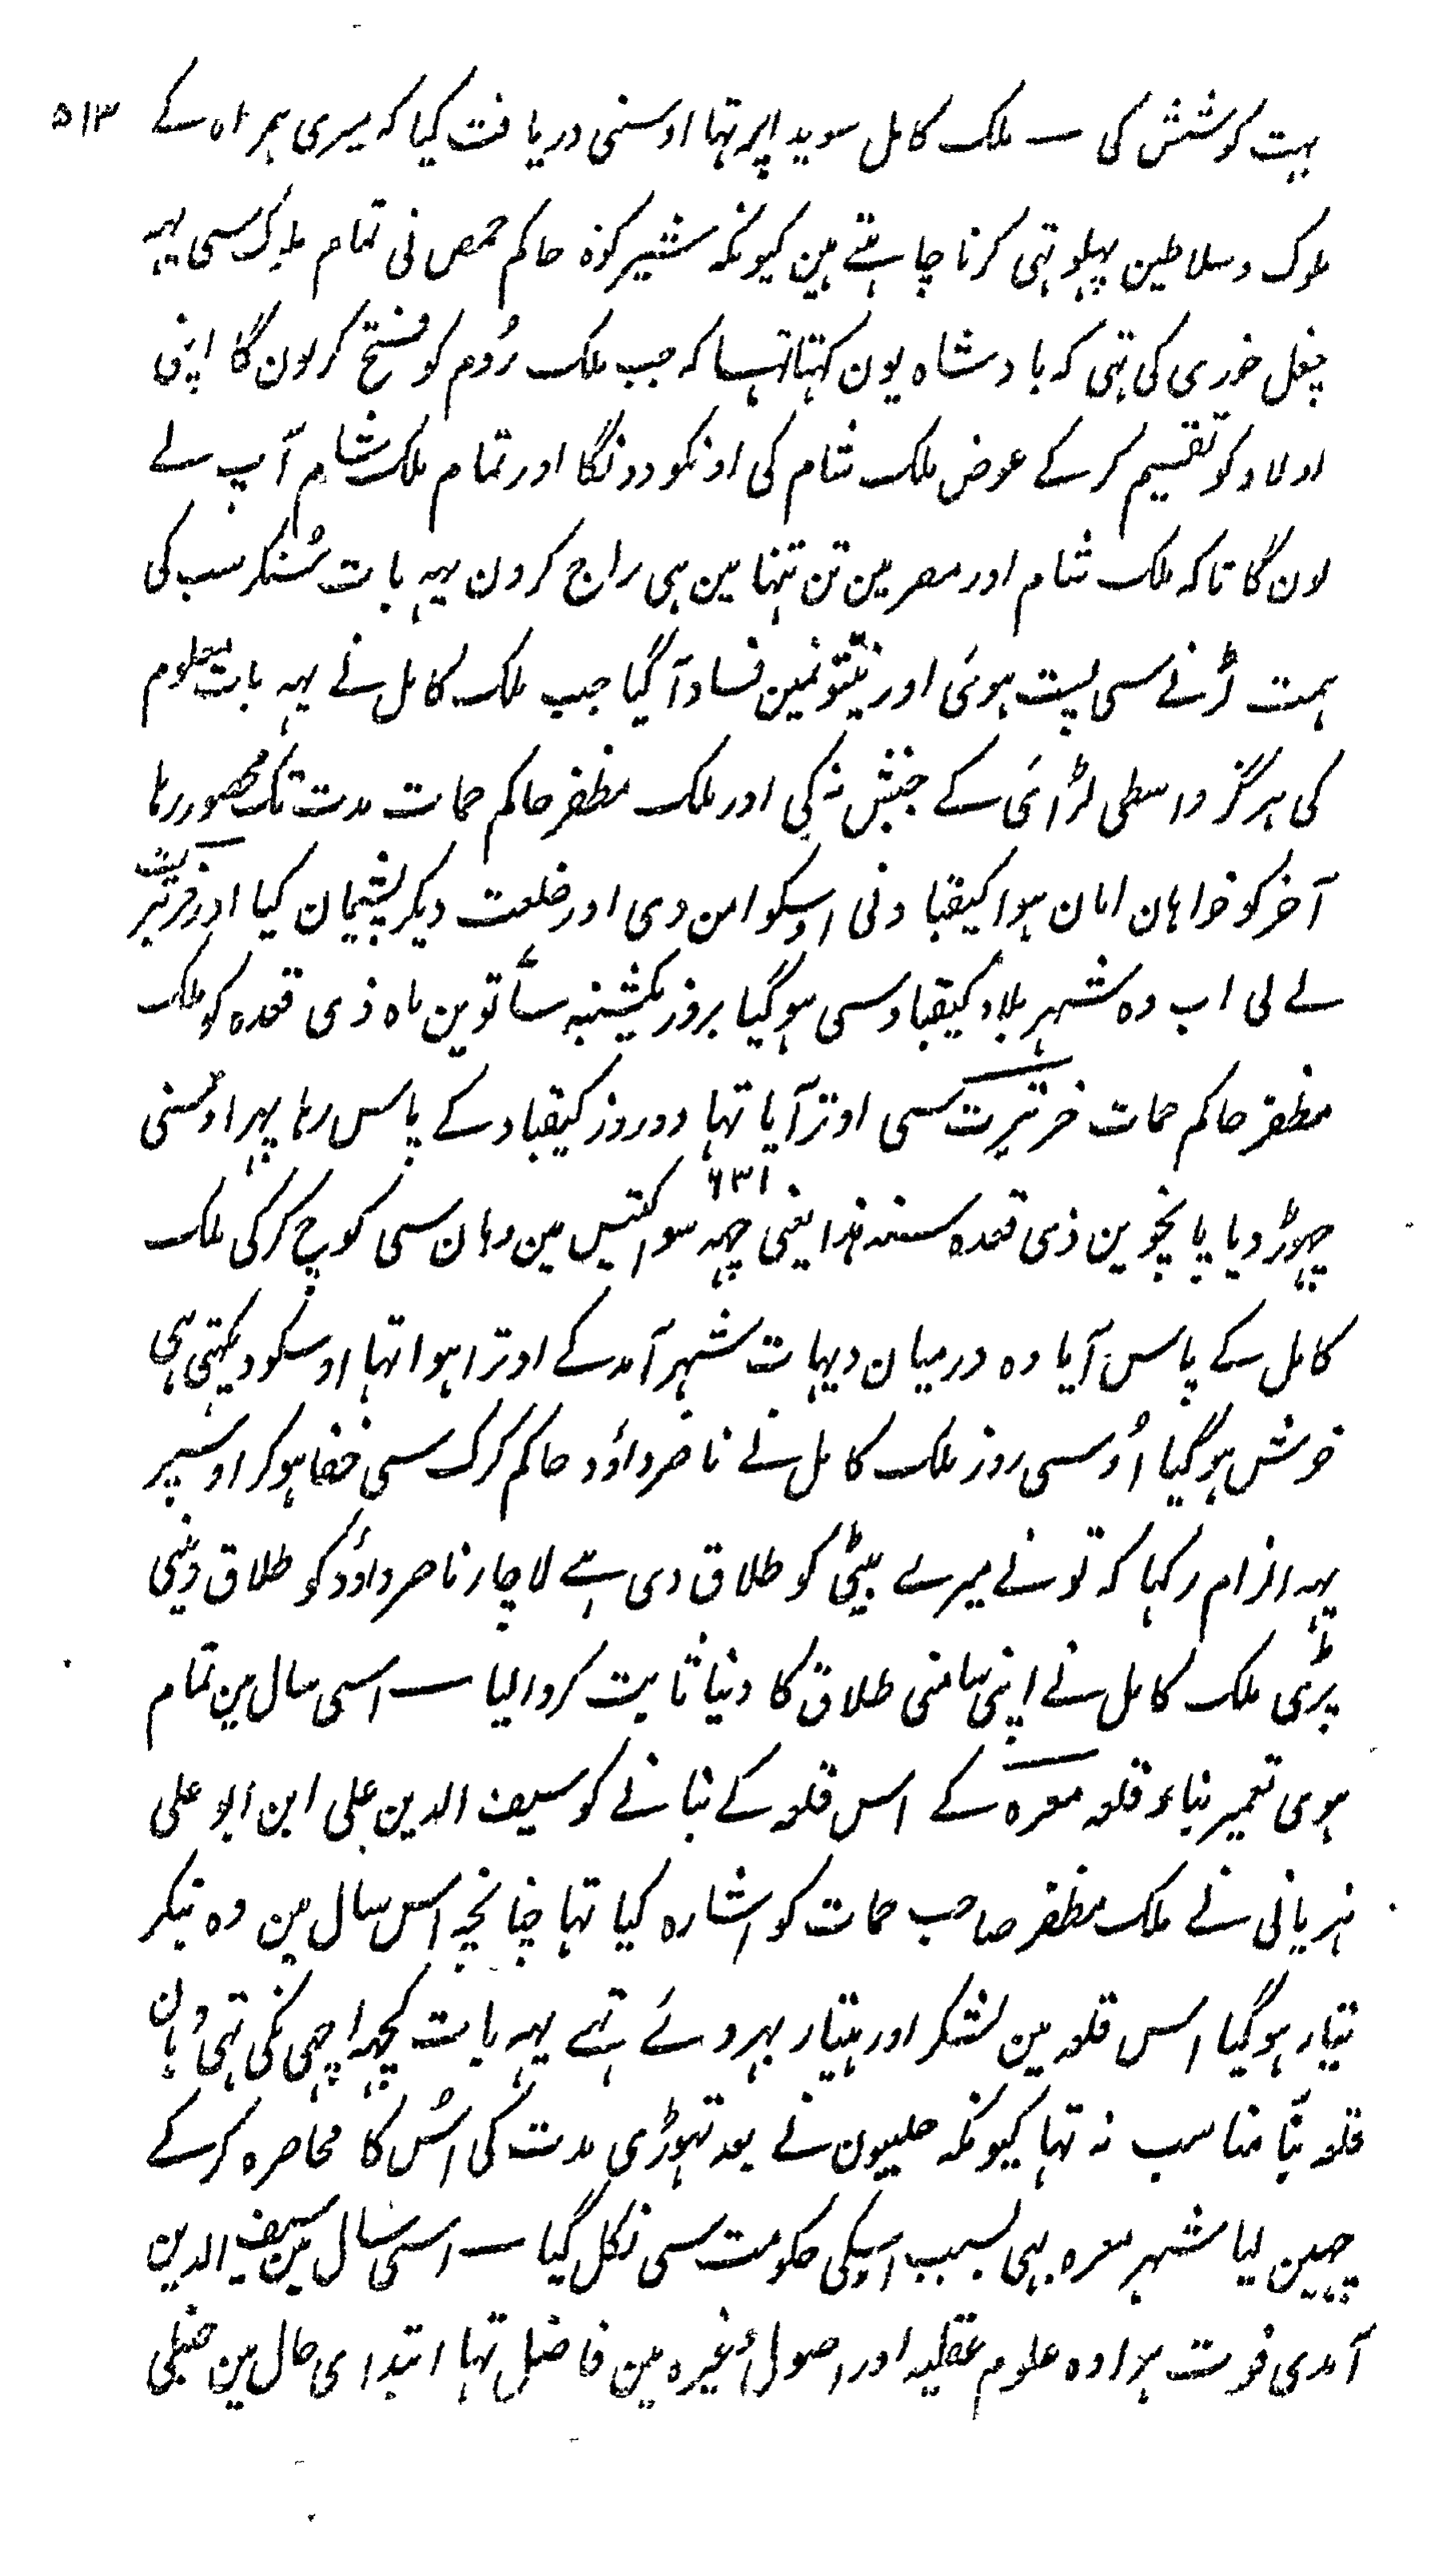 ۵۱۳
بہت کوشش کی ـــ ملک کامل سویدا پر تہا اوسنی دریافت کیا کہ میری ہمراہ کے
ملوک و سلاطین پہلو تہی کرنا چاہتے ہین کیونکہ شیرکوہ حاکم حمص نی تمام ملوک سی یہہ
چغل خوری کی تہی کہ بادشاہ یون کہتا تہا کہ جب ملک رُوم کو فتح کرلون گا اپنی
اولاد کو تقسیم کرکے عوض ملک شام کی اونکو دونگا اور تمام ملک شام آپ لے
لون گا تاکہ ملک شام اور مصر مین تن تنہا مین ہی راج کرون یہہ بات سُنکر سب کی
ہمت لڑنے سی پست ہوئی اور نیتونمین فساد آگیا جب ملک کامل نے یہہ بات معلوم
کی ہرگز واسطی لڑائی کے جنبش نہ کی اور ملک مظفر حاکم حمات مدت تک محصور رہا
آخر کو خواہان امان ہوا کیقباد نی اوسکو امن دی اور خلعت دیکر پشیمان کیا اور خرتبرت
لے لی اب وہ شہر بلاد کیقباد سی ہوگیا بروز یکشنبہ ساتوین ماہ ذی قعدہ کو ملک
مظفر حاکم حمات خرتبرت سی اوتر آیا تہا دو روز کیقباد کے پاس رہا پہر اوسنی
چہوڑ دیا پانچوین ذی قعدہ سنہ ہذا یعنی چہہ سو اکتیس ۶۳۱ مین وہان سی کوچ کرکی ملک
کامل کے پاس آیا وہ درمیان دیہات شہر آمد کے اوترا ہوا تہا اوسکو دیکہتی ہی
خوش ہوگیا اُوسی روز ملک کامل نے ناصر داؤد حاکم کرک سی خفا ہوکر اوسپر
یہہ الزام رکہا کہ تو نے میرے بیٹی کو طلاق دی ہے لاچار ناصر داؤد کو طلاق دینی
پڑی ملک کامل نے اپنی سامنی طلاق کا دنیا ثابت کروالیا ـــ اسی سال مین تمام
ہوی تعمیر بناء قلعہ معرہ کے اس قلعہ کے بنانے کو سیف الدین علی ابن ابو علی
ہذبانی نے ملک مظفر صاحب حمات کو اشارہ کیا تہا چنانچہ اس سال مین وہ بنکر
تیار ہوگیا اس قلعہ مین لشکر اور ہتیار بہروئے تہے یہہ بات کچہہ اچہی نکی تہی وہان
قلعہ بنّا مناسب نہ تہا کیونکہ حلبیون نے بعد تہوڑی مدت کی اسُ کا محاصرہ کرکے
چہین لیا شہر معرہ بہی بسبب اسکی حکومت سی نکل گیا ـــ اسی سال مین سیف الدین
آمدی فوت ہوا وہ علوم عقلیہ اور اصول وغیرہ مین فاضل تہا ابتدای حال مین حنبلی